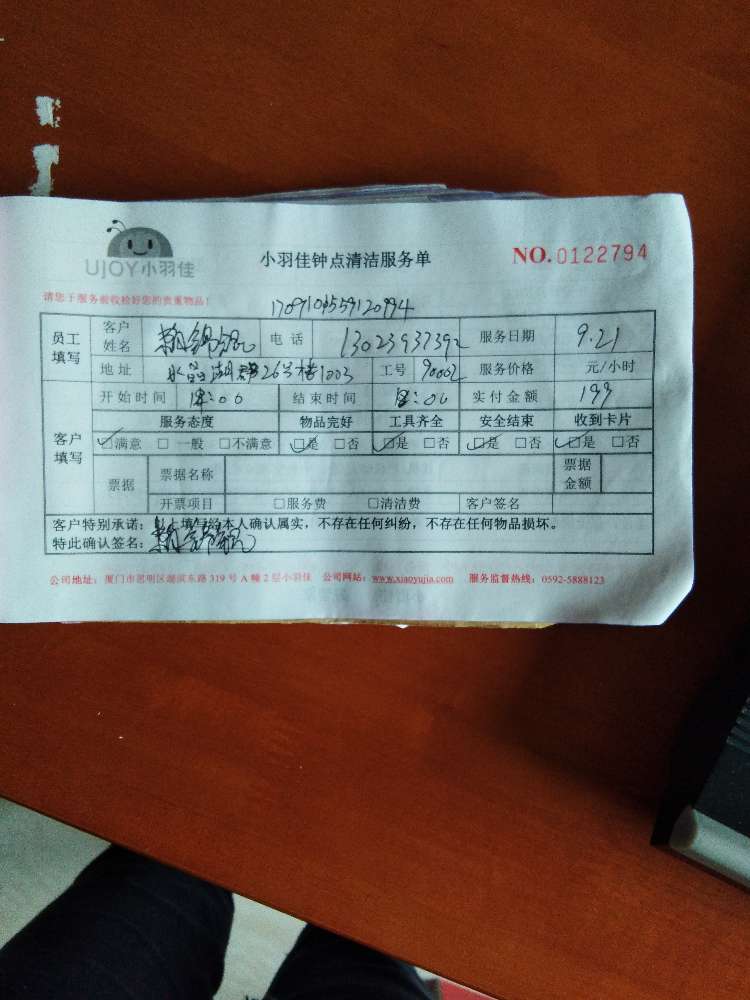 UJOY小羽佳
小羽佳钟点清洁服务单
NO.0122794
请您于服务前收捡好您的贵重物品！
员工填写 客户姓名 电话 13023937392 服务日期 9.21
地址 水晶湖郡26号楼1003 工号 90002 服务价格 元/小时
客户填写 开始时间 :00 结束时间 :00 实付金额 199
服务态度 物品完好 工具齐全 安全结束 收到卡片
☑满意 □一般 □不满意 ☑是 □否 ☑是 □否 ☑是 □否 ☑是 □否
票据 票据名称 票据金额
开票项目 □服务费 □清洁费 客户签名
客户特别承诺：以上填写经本人确认属实，不存在任何纠纷，不存在任何物品损坏。
特此确认签名：
公司地址：厦门市思明区湖滨东路319号A幢2层小羽佳 公司网站：www.xiaoyujia.com 服务监督热线：0592-5888123